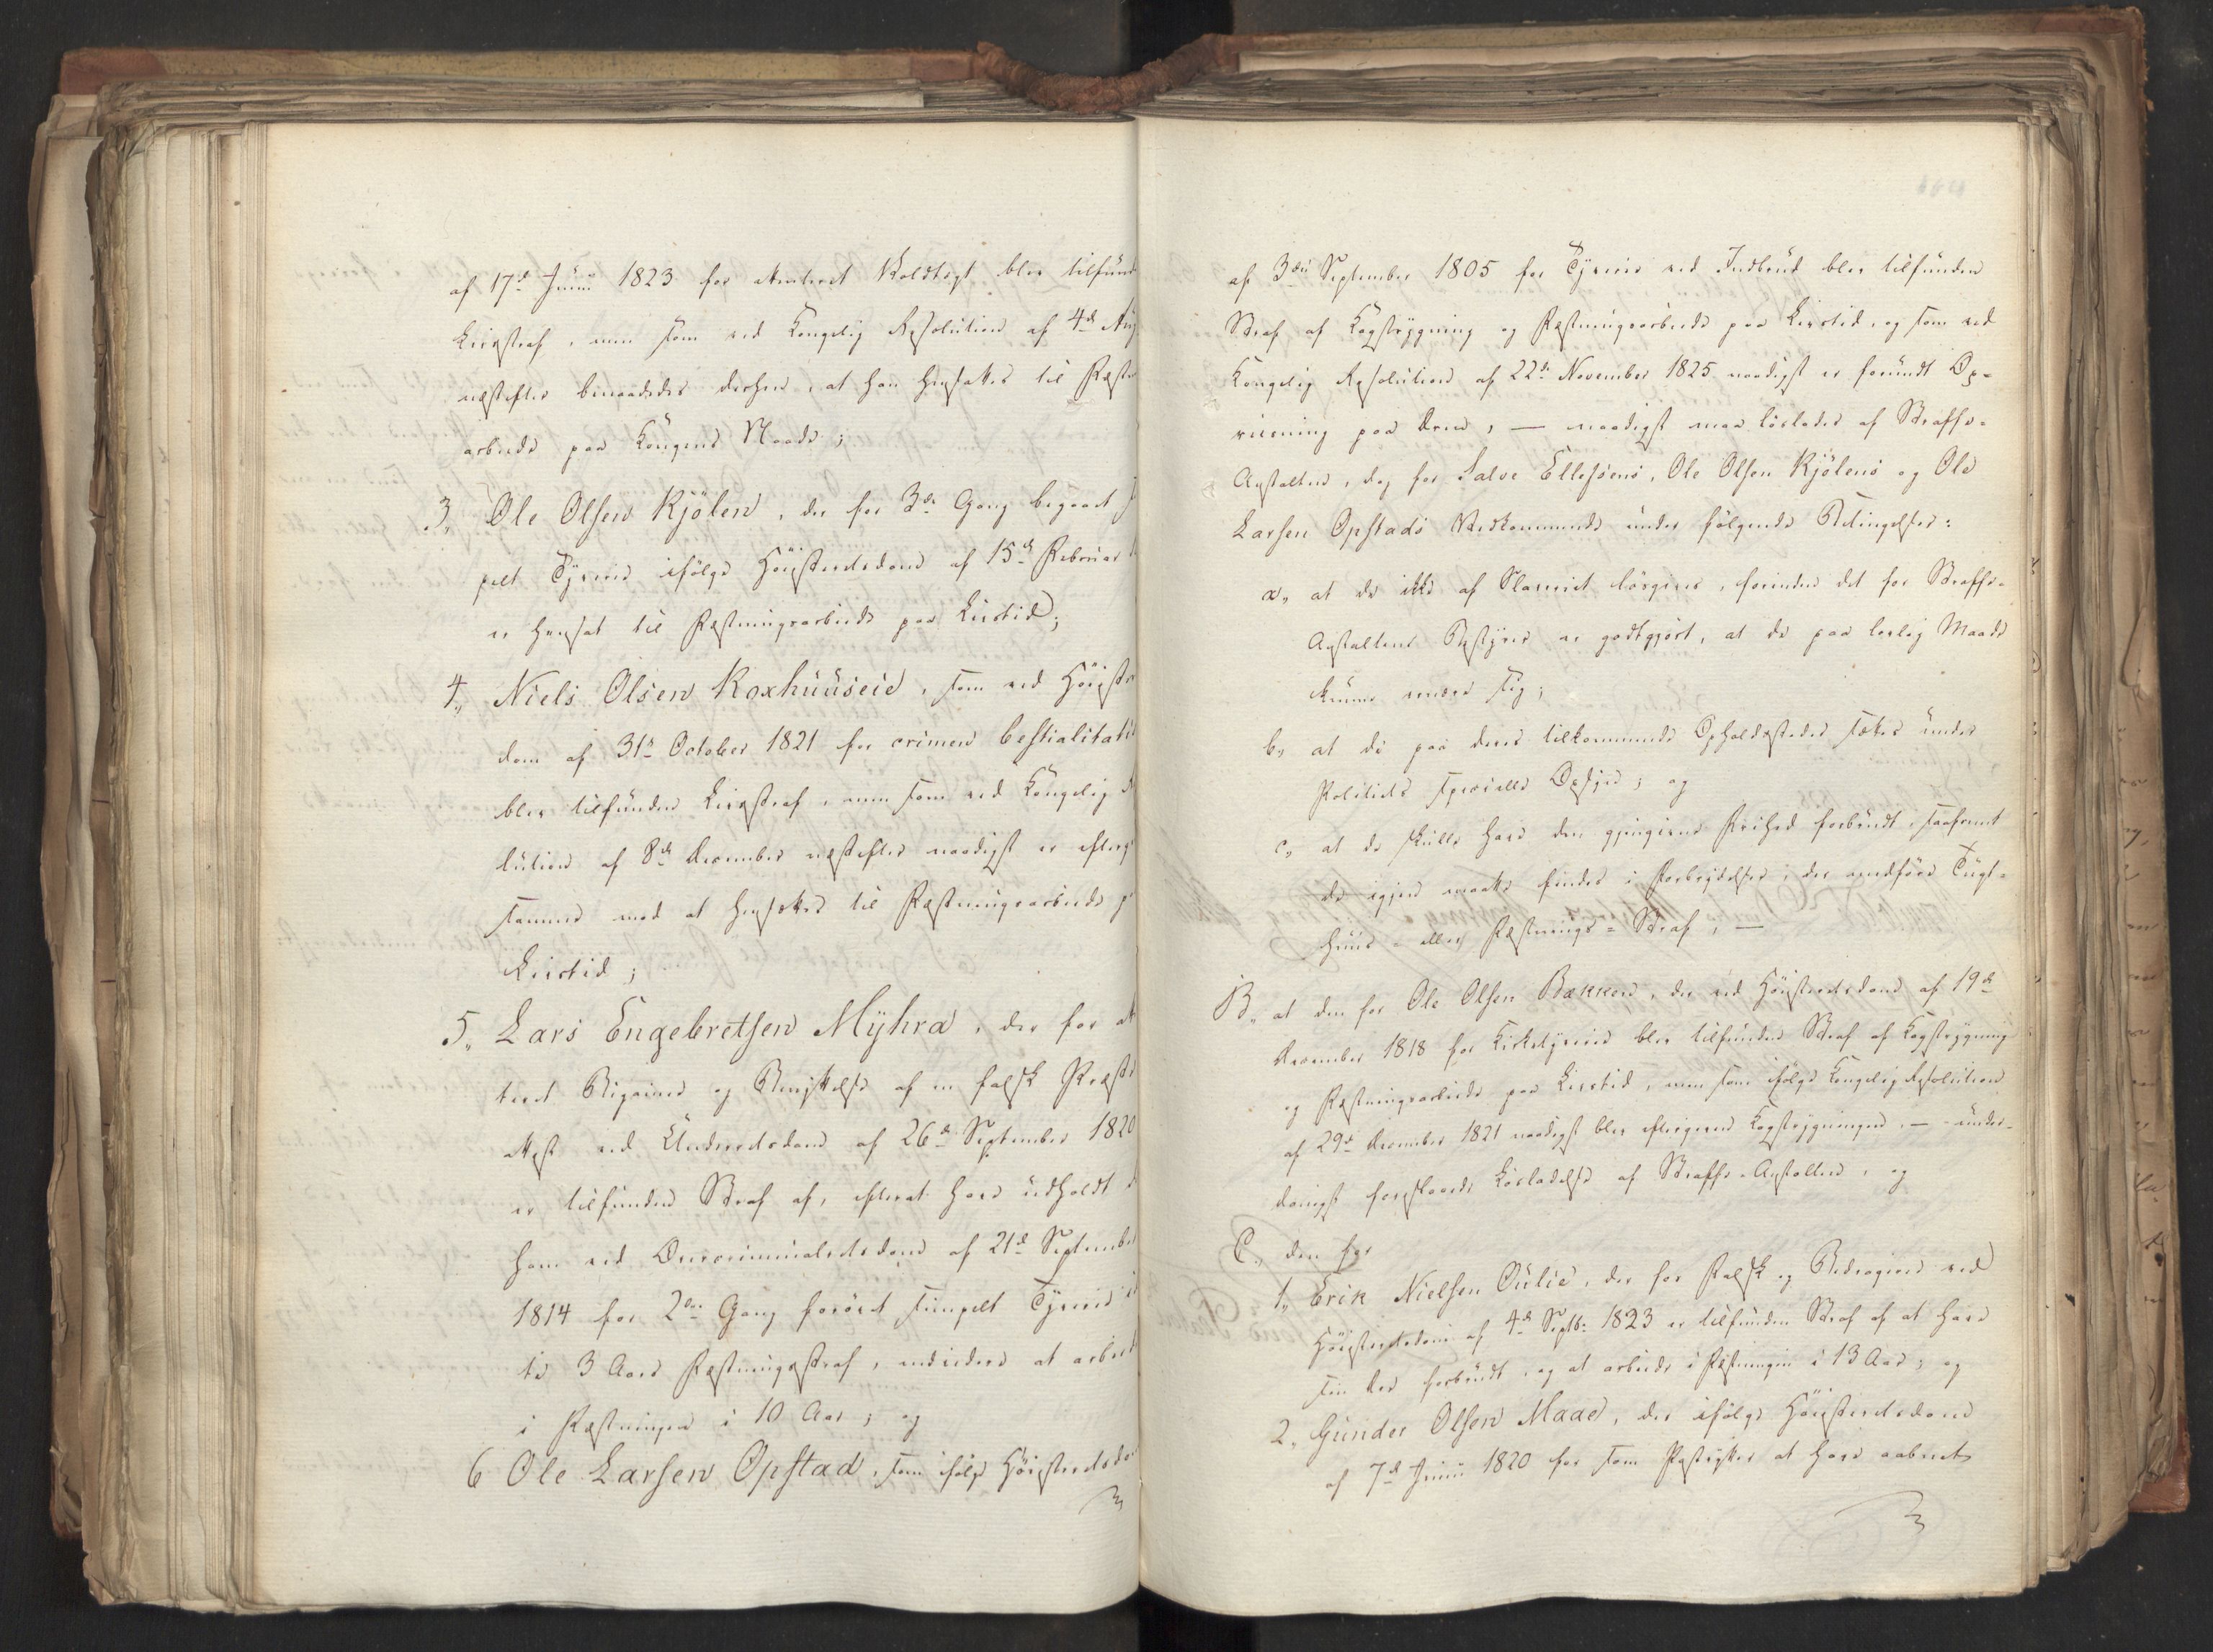 af 17de Junii 1823 for attenteret Voldtægt blev tilfund
Livsstraf, men som ved Kongelig Resolution af 4de Aug
næstefter benaadedes derhen, at han hensattes til Fæst
arbeide paa Kongens Naade;
3, Ole Olsen Kjölen, der for 3die Gang begaaet
pelt Tyverie ifölge Höiesteretsdom af 15de Februar
er hensat til Fæstningsarbeide paa Livstid;
4, Niels Olsen Roxhuuseie, som ved Höieste
dom af 31te October 1821 for crimen bestialitatis
blev tilfunden Livsstraf, men som ved Kongelig
lution af 8de December næstefter naadigst er efterg
sammes mod at hensættes til Fæstningsarbeide
Livstid;
5, Lars Engebretsen Myhra, der for at
teret Bigamie og Benyttelse af en falsk Præste
attest ved Underretsdom af 26de September 1820
er tilfunden Straf af, efterat have udholdt
ham ved Overcriminalretsdom af 21de September
1814 for 2den Gang forövet simpelt Tyverie
te 3 Aars Fæstningsstraf, endvidere at arbeide
i Fæstningen i 10 Aar; og
6 Ole Larsen Opstad, som ifölge Höiesteretsdo
af 3die September 1805 for Tyverie ved Indbrud blev tilfunden
Straf af Kagstrygning og Fæstningsarbeide paa Livstid, og som ved
Kongelig Resolution af 22de November 1825 naadigst er forundt Op-
reisning paa Æren, — naadigst maa löslades af Straffe-
Anstalten, dog for Salve Ellefsens, Ole Olsen Kjölens og Ole
Larsen Opstads Vedkommende under fölgende Betingelser:
a, at de ikke af Slaveriet lösgives, forinden det for Straffe-
Anstaltens Bestyrer er godtgjort, at de paa lovlig Maade
kunne ernære sig;
b, at de paa deres tilkommende Opholdssteder sættes under
Politiets specielle Opsyn; og
c, at de skulle have den gjengivne Frihed forbrudt, saafremt
de igjen maatte findes i Forbrydelser, der medföre Tugt-
huus- eller Fæstnings-Straf, —
B, at den for Ole Olsen Bækken, der ved Höiesteretsdom af 19de
December 1818 for Kirketyverie blev tilfunden Straf af Kagstrygning
og Fæstningsarbeide paa Livstid, men som ifölge Kongelig Resolution
af 29de December 1821 naadigst blev eftergivet Kagstrygningen, — under-
danigst foreslaaede Lösladelse af Straffe-Anstalten, og
C, den for
1, Erik Nielsen Oulie, der for Falsk og Bedragerie ved
Höiesteretsdom af 4de Septbr 1823 er tilfunden Straf af at have
sin Ære forbrudt, og at arbeide i Fæstningen i 13 Aar; og
2, Gunder Olsen Maae, der ifölge Höiesteretsdom
af 7de Junii 1820 for som Postrytter at have aabnet